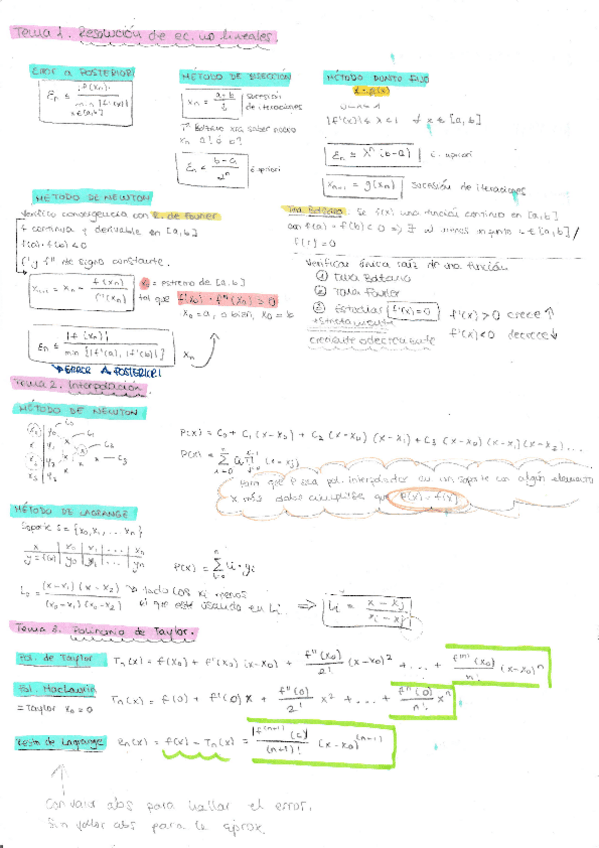 Tema 1. Resolución de ec. no lineales
ERROR A POSTERIORI
En ≤ |f(xn)| / min |f'(x)|
x∈[a,b]
MÉTODO DE BISECCIÓN
xn = a+b / 2 sucesión de iteraciones
Tª Bolzano xra saber nuevo
xn a! ó b?
En ≤ b-a / 2^n E. apriori
MÉTODO PUNTO FIJO
x = g(x)
|f'(x)| ≤ λ < 1 ∀ x ∈ [a,b]
En = λ^n (b-a) E. apriori
xn+1 = g(xn) sucesión de iteraciones
MÉTODO DE NEWTON
Verifico convergencia con T. de Fourier
f continua y derivable en [a,b]
f(a)·f(b) < 0
f' y f'' de signo constante.
xn+1 = xn - f(xn) / f'(xn)
x0 = extremo de [a,b]
tal que f(x0) · f''(x0) > 0
x0 = a, o bien, x0 = b
En ≤ |f(xn)| / min {|f'(a)|, |f'(b)|} xn
ERROR A POSTERIORI
Tma Bolzano Se f(x) una función continua en [a,b]
con f(a) · f(b) < 0 => ∃ al menos un punto c∈[a,b] /
f(c) = 0
Verificar única raíz de una función
① Tma Bolzano
② Tma Fourier
③ Estudiar f'(x) = 0 f'(x) > 0 crece ↑
estrictamente f'(x) < 0 decrece ↓
creciente o decreciente
Tema 2. Interpolación
MÉTODO DE NEWTON
x0 y0 C0
C1
C2
C3
P(x) = C0 + C1 (x-x0) + C2 (x-x0) (x-x1) + C3 (x-x0) (x-x1)(x-x2) ...
Para que P sea pol. interpolador en un soporte con algún elemento
x más debe cumplirse que P(x) = f(x)
MÉTODO DE LAGRANGE
Soporte S = {x0, x1, ... xn}
x x0 x1 ... xn
y = f(x) y0 y1 ... yn
P(x) = Σ Li · yi
L0 = (x-x1) (x-x2) / (x0-x1) (x0-x2) todo los xi menos
el que esté usando en Li. => Li = x - xj / xi - xj
Tema 3. Polinomio de Taylor.
Pol. de Taylor Tn(x) = f(x0) + f'(x0) (x-x0) + f''(x0)/2! (x-x0)² + ... + f^(n)(x0)/n! (x-x0)^n
Pol. MacLaurin Tn(x) = f(0) + f'(0) x + f''(0)/2! x² + ... + f^n(0)/n! x^n
= Taylor x0 = 0
Resto de Lagrange En(x) = f(x) - Tn(x) = |f^(n+1)(c)| / (n+1)! (x-x0)^(n+1)
Con valor abs para hallar el error.
Sin valor abs para la aprox.